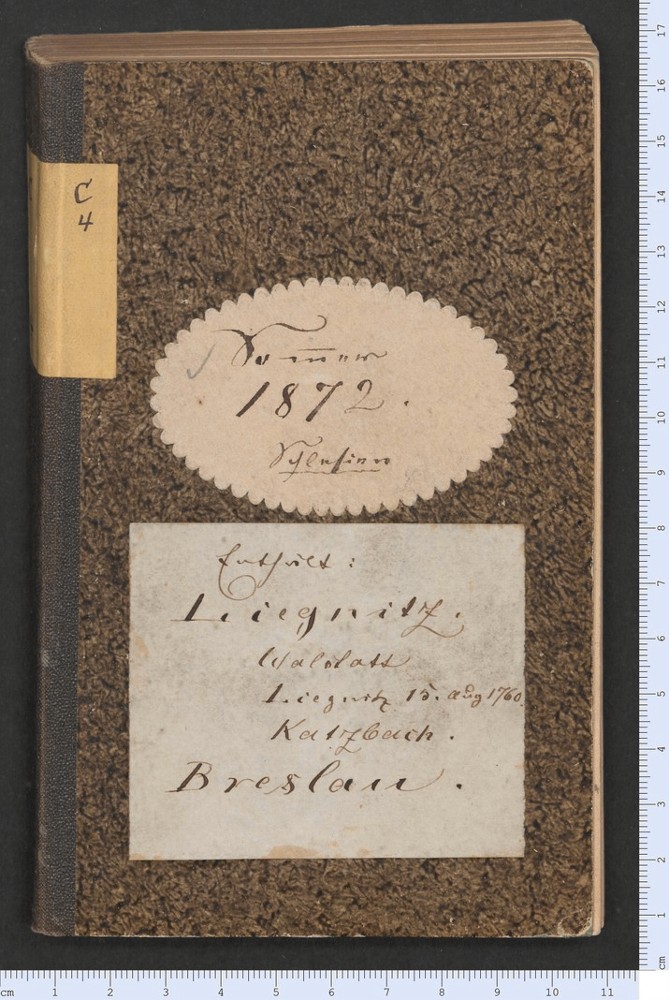 C
4
Sommer
1872.
Schlesien
Enthält:
Liegnitz.
Walstatt
Liegnitz 15. Aug 1760.
Katzbach.
Breslau.
cm 1 2 3 4 5 6 7 8 9 10 11
cm 1 2 3 4 5 6 7 8 9 10 11 12 13 14 15 16 17